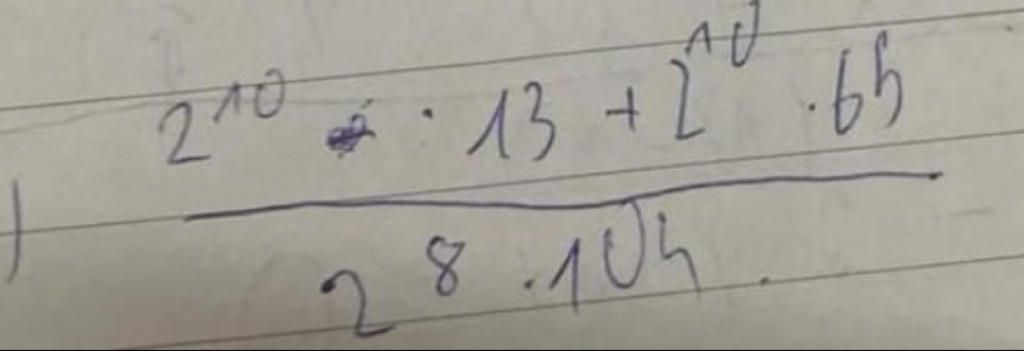 2^10 · 13 + 2^10 · 65
) 2^8 · 104